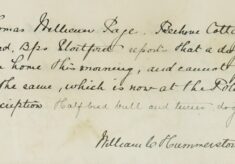 omas William Page, Beehive Cotta
rd, Bps Stortford reports that a do
n home this morning, and cannot
the same, which is now at the Poli
cription Half bred bull and terrier dog
William C Hummerston